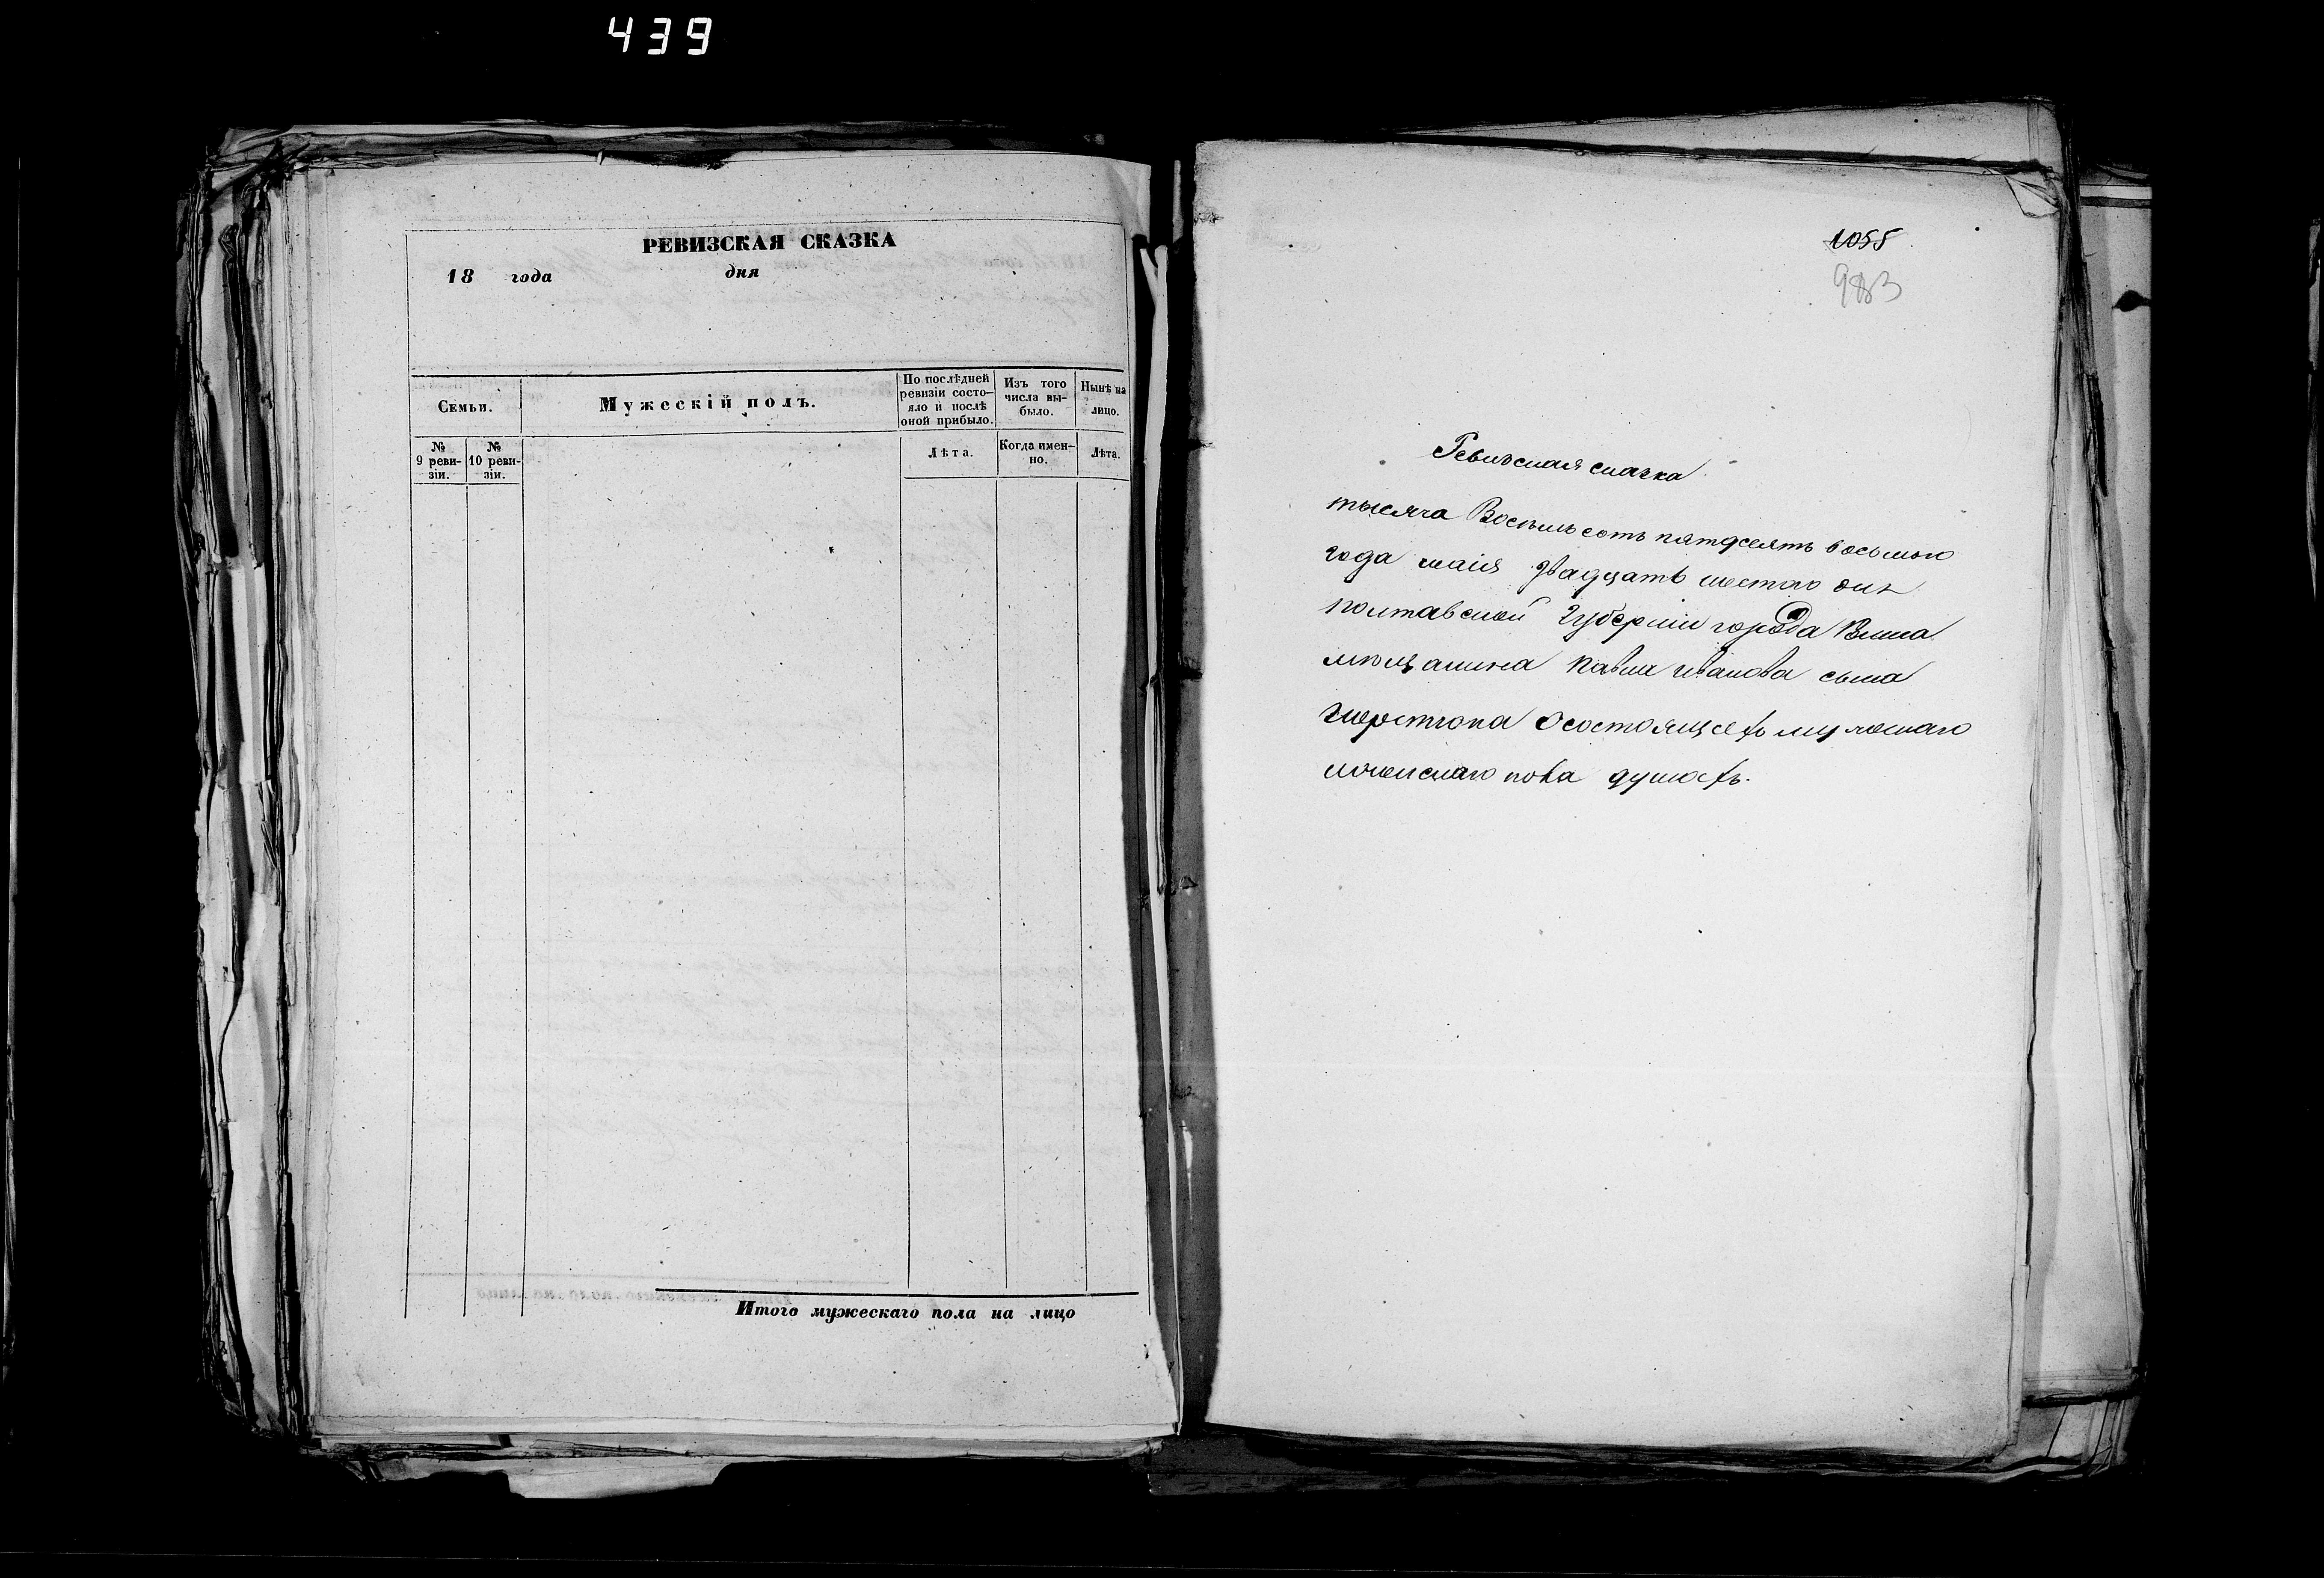 439
РЕВИЗСКАЯ СКАЗКА
18 года дня
Семьи.
Мужескій полъ.
По послѣдней ревизіи состо-
яло и послѣ оной прибыло.
Изъ того числа вы-
было.
Нынѣ на лицо.
№ 9 реви-
зіи.
№ 10 реви-
зіи.
Лѣта.
Когда имен-
но.
Лѣта.
Итого мужескаго пола на лицо
1055
983
Ревизская сказка
тысяча Восемь сотъ пятдесятъ восьмого
года маія двадцать шестого дня
полтавской Губерніи города
мѣщанина Павла Иванова сына
осостоящехъ мужескаго
иженскаго пола душехъ.